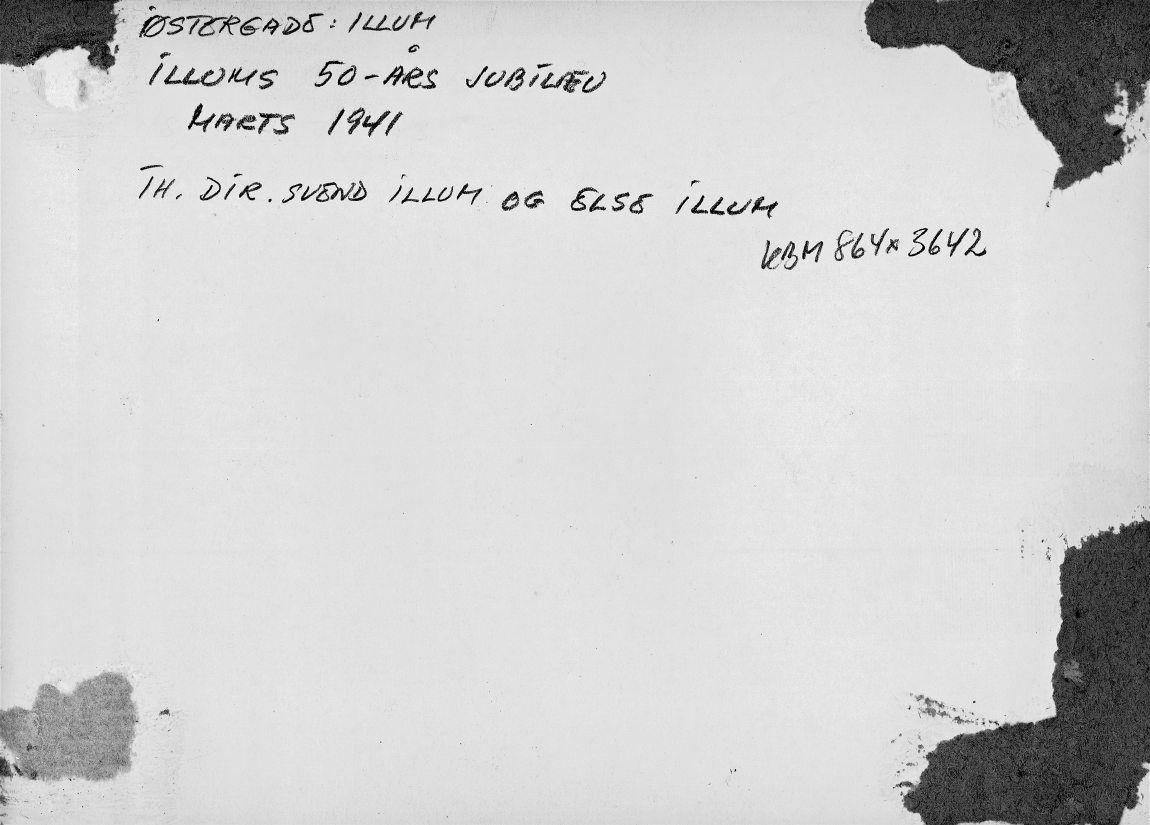 ØSTERGADE: ILLUM
ILLUMS 50-ÅRS JUBILÆU
MARTS 1941
TH. DIR. SVEND ILLUM OG ELSE ILLUM
KBM 864x3642